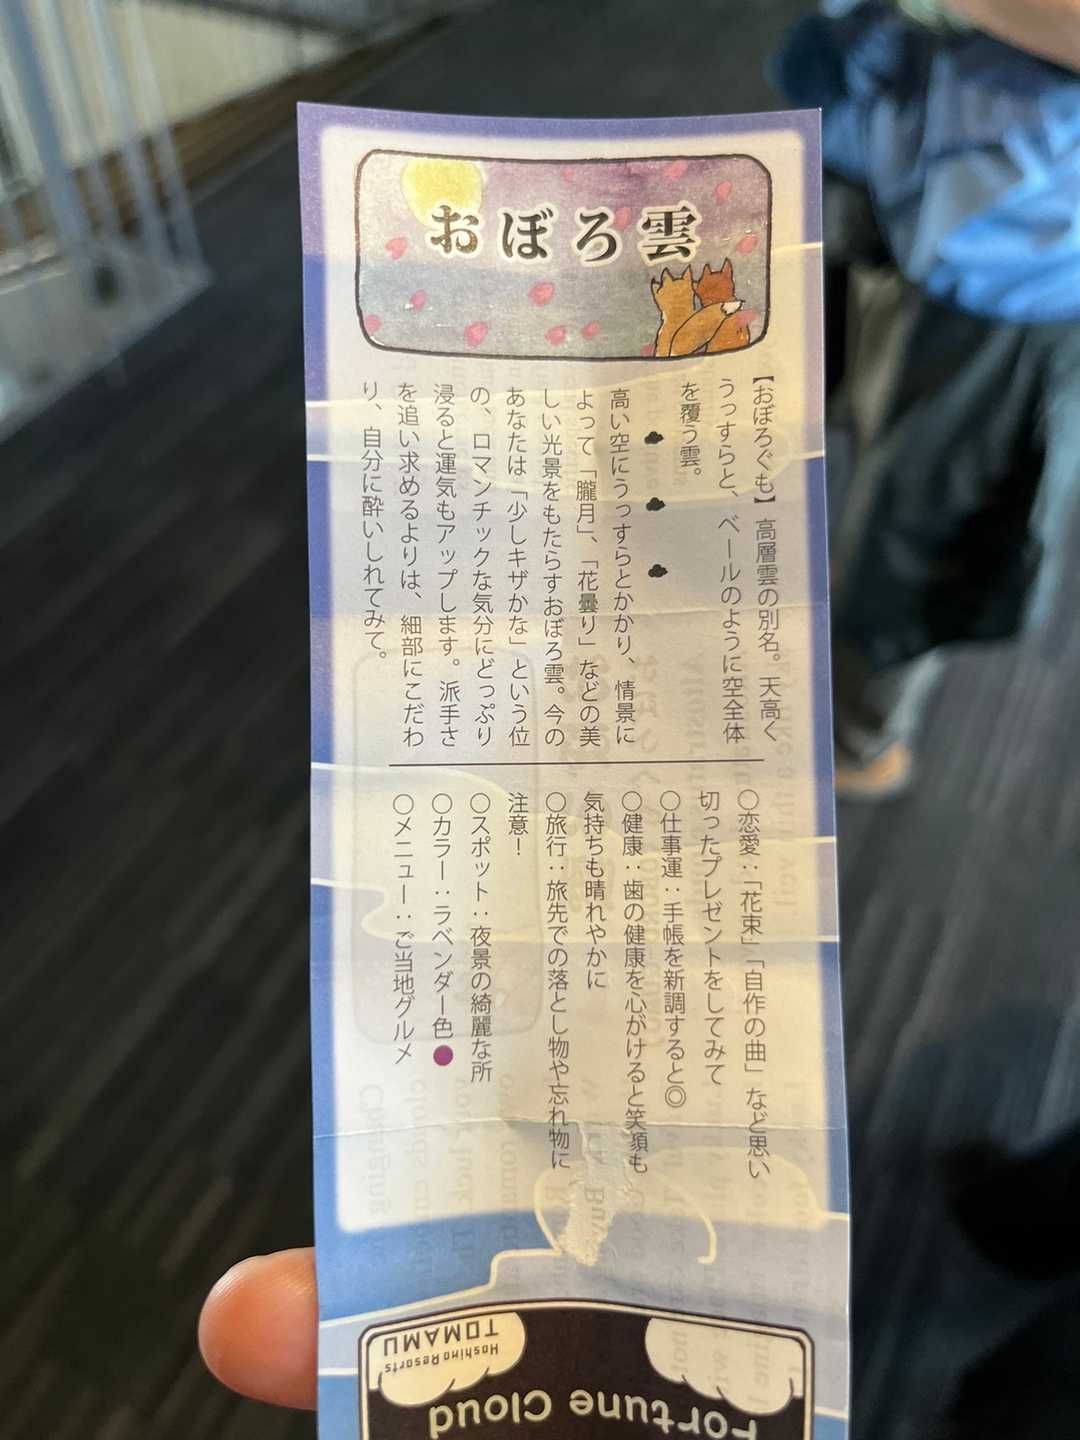 おぼろ雲
【おぼろぐも】高層雲の別名。天高く
うっすらと、ベールのように空全体
を覆う雲。
高い空にうっすらとかかり、情景に
よって「朧月」、「花曇り」などの美
しい光景をもたらすおぼろ雲。今の
あなたは「少しキザかな」という位
の、ロマンチックな気分にどっぷり
浸ると運気もアップします。派手さ
を追い求めるよりは、細部にこだわ
り、自分に酔いしれてみて。
○恋愛：「花束」「自作の曲」など思い
切ったプレゼントをしてみて
○仕事運：手帳を新調すると◎
○健康：歯の健康を心がけると笑顔も
気持ちも晴れやかに
○旅行：旅先での落とし物や忘れ物に
注意！
○スポット：夜景の綺麗な所
○カラー：ラベンダー色●
○メニュー：ご当地グルメ
Fortune Cloud
Hoshino Resorts
TOMAMU